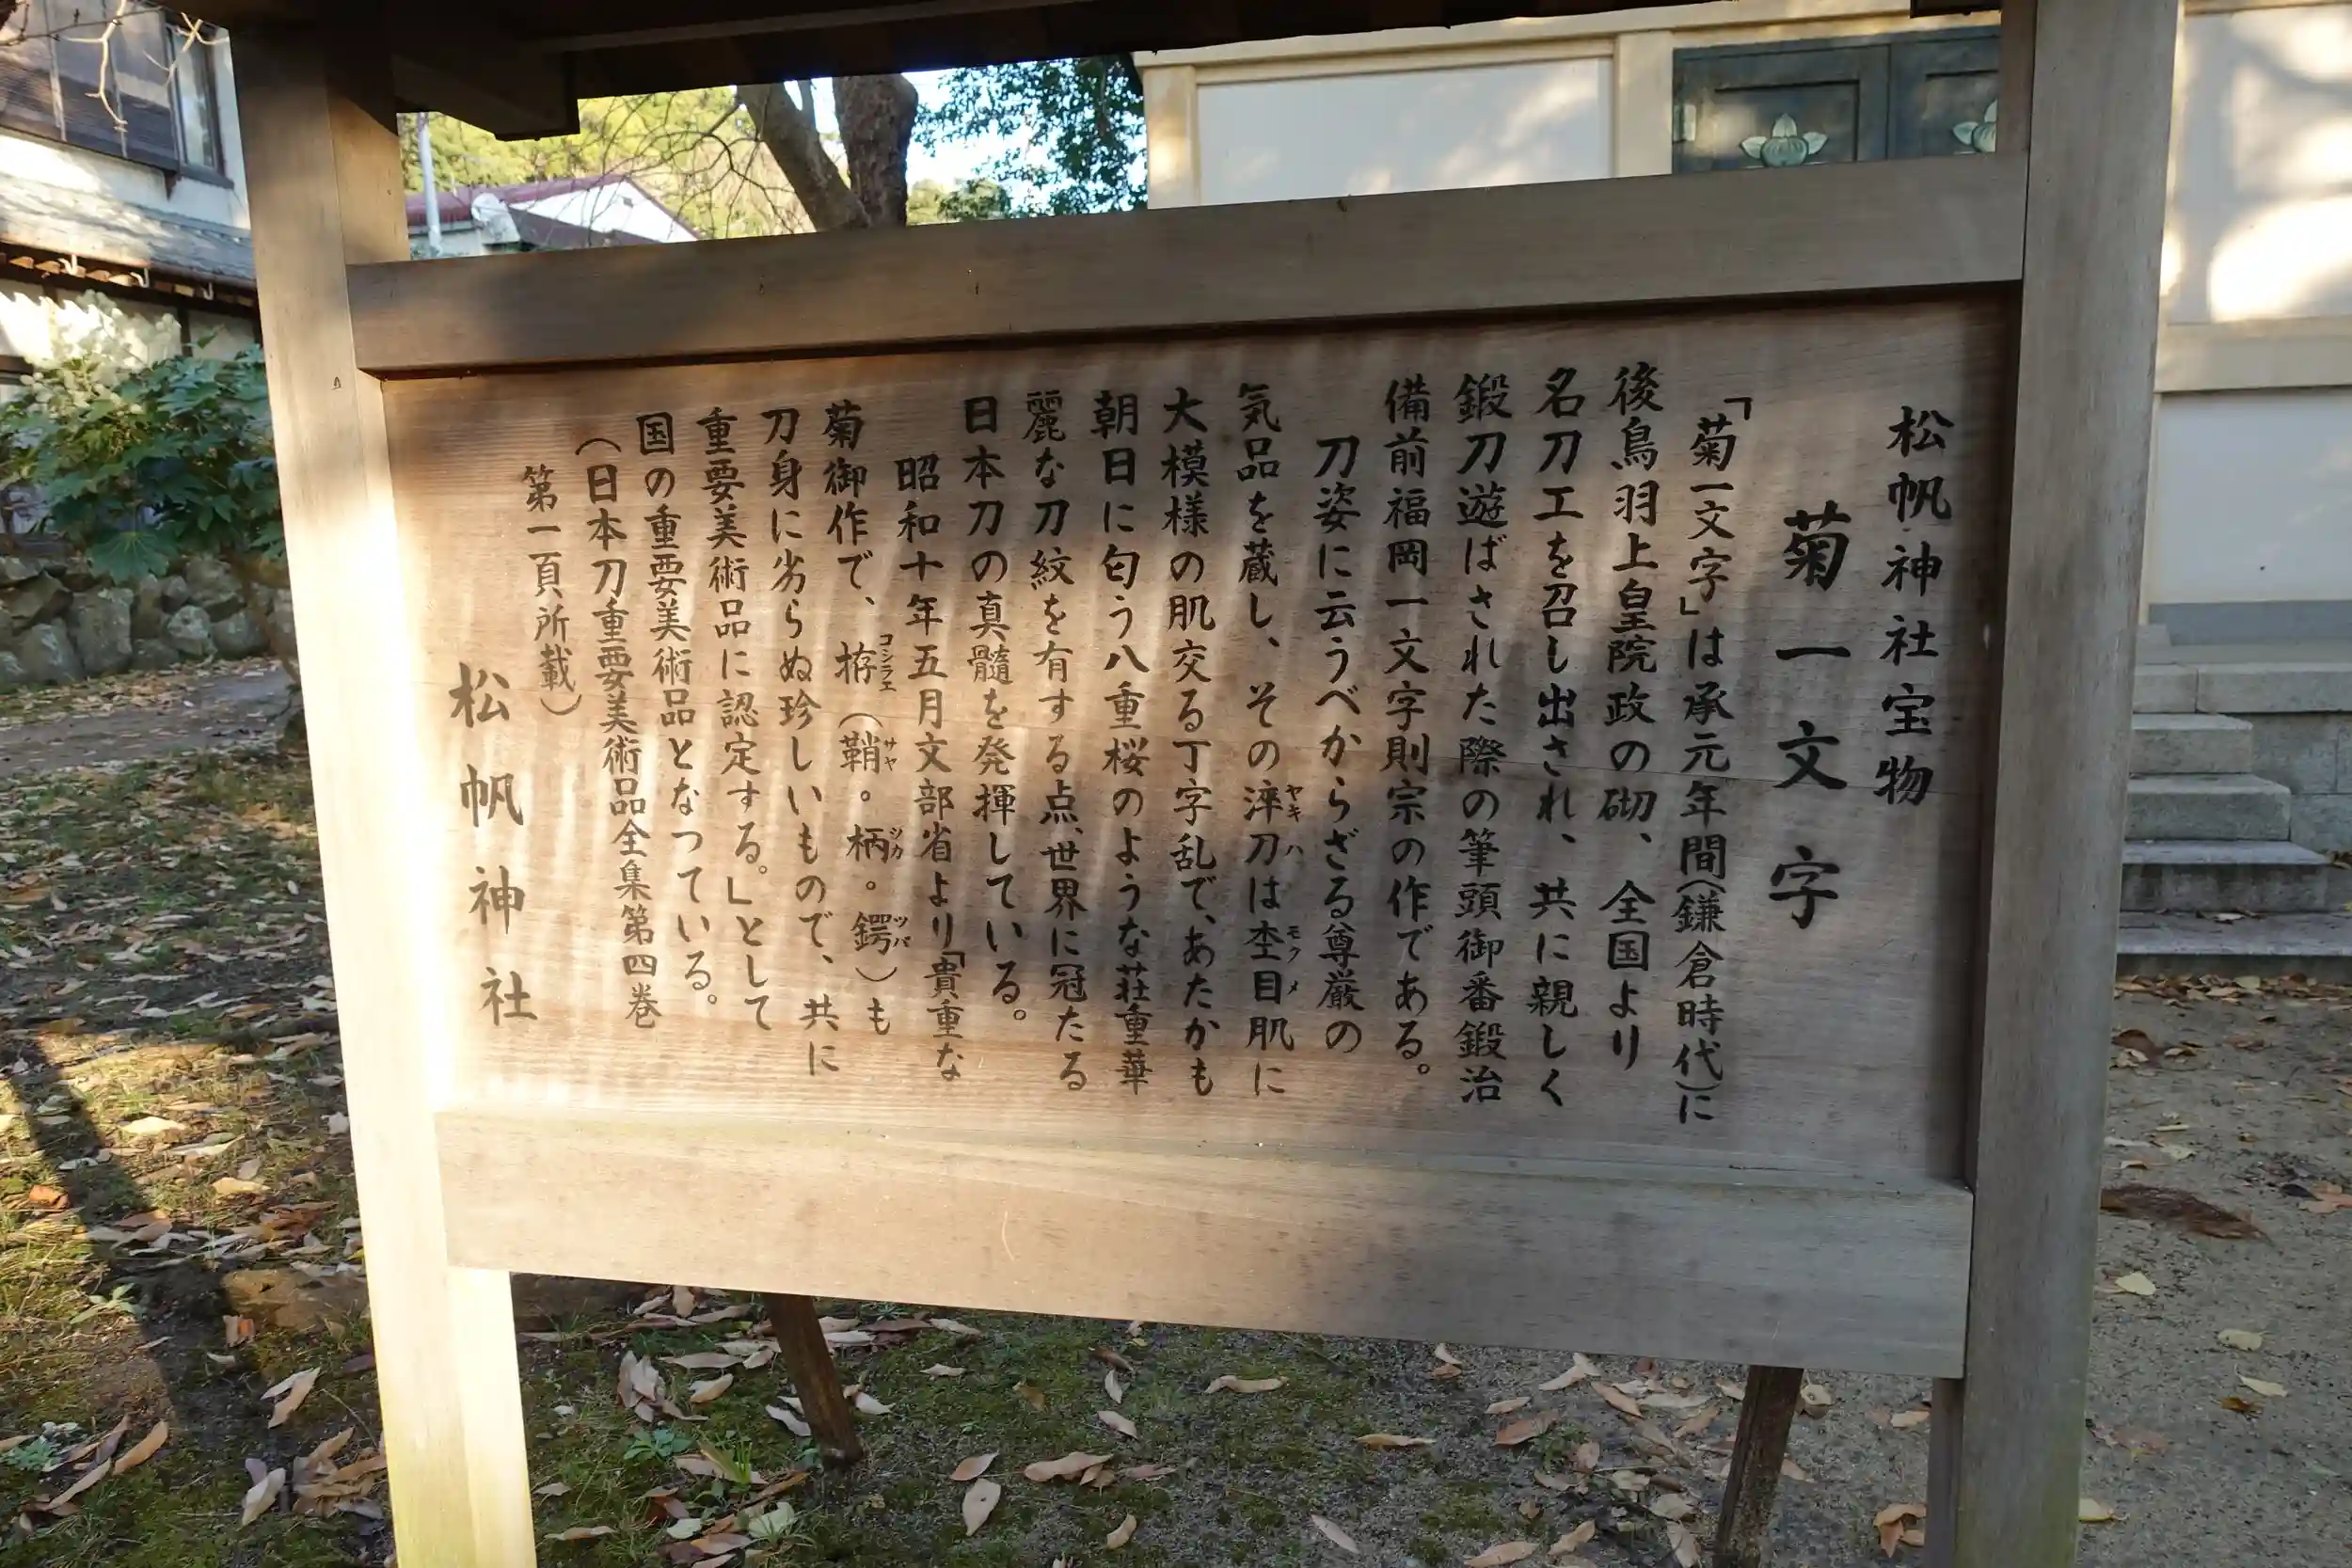 松帆神社宝物
菊一文字
「菊一文字」は承元年間(鎌倉時代)に
後鳥羽上皇院政の砌、全国より
名刀工を召し出され、共に親しく
鍛刀遊ばされた際の筆頭御番鍛冶
備前福岡一文字則宗の作である。
刀姿に云うべからざる尊厳の
気品を蔵し、その淬刀は杢目肌に
ヤキハ
モクメ
大模様の肌交る丁字乱で、あたかも
朝日に匂う八重桜のような荘重華
麗な刀紋を有する点、世界に冠たる
日本刀の真髓を発揮している。
昭和十年五月文部省より「貴重な
菊御作で、拵(鞘。柄。鍔)も
コシラエ
サヤ
ツカ
ツバ
刀身に劣らぬ珍しいもので、共に
重要美術品に認定する。」として
国の重要美術品となつている。
(日本刀重要美術品全集第四巻
第一頁所載)
松帆神社